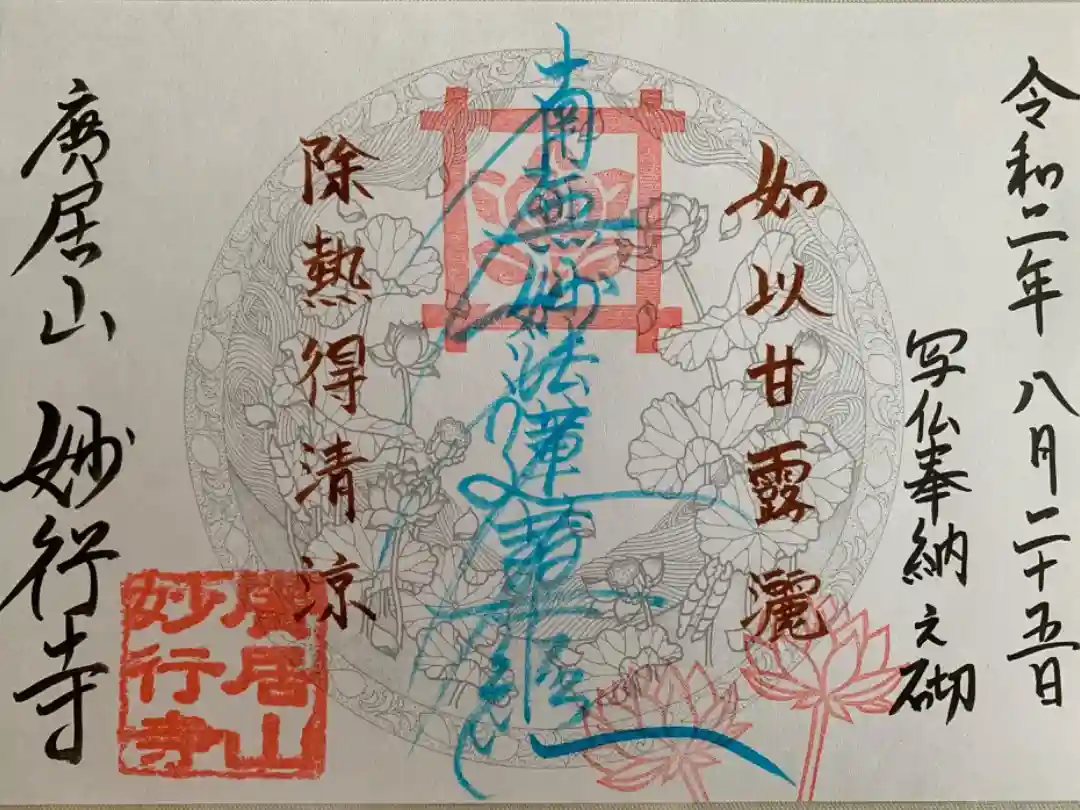 令和二年 八月二十五日
写仏奉納之砌
如以甘露灑
南無妙法蓮華経
除熱得清涼
廣居山 妙行寺
廣居山
妙行寺